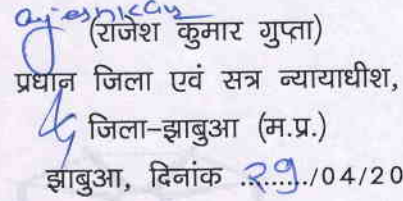 (राजेश कुमार गुप्ता)
प्रधान जिला एवं सत्र न्यायाधीश,
जिला-झाबुआ (म.प्र.)
झाबुआ, दिनांक ..29../04/20